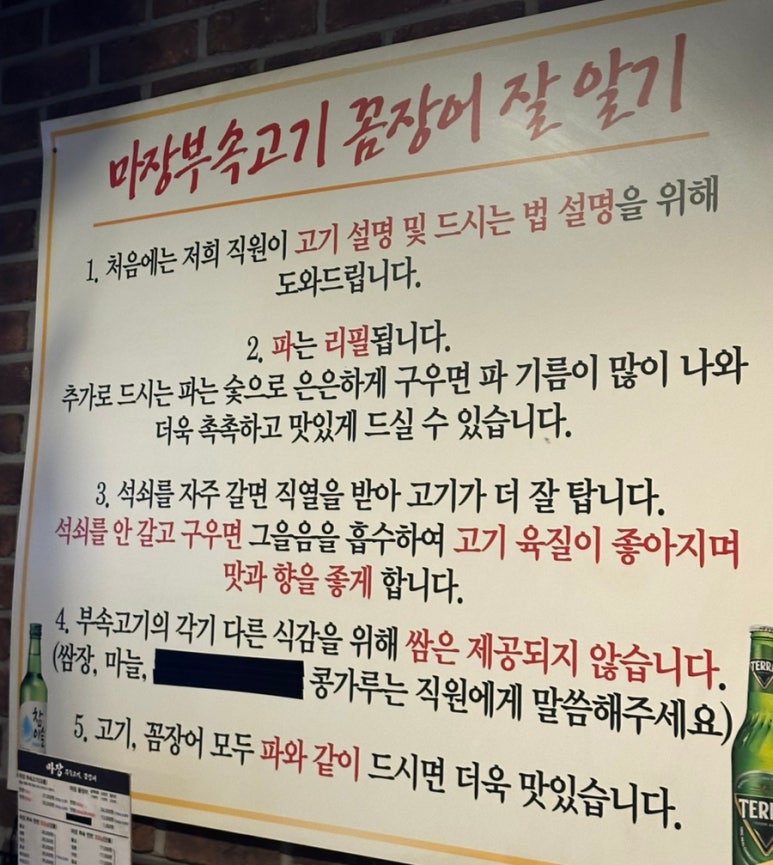 마장부속고기 꼼장어 잘 알기
1. 처음에는 저희 직원이 고기 설명 및 드시는 법 설명을 위해
도와드립니다.
2. 파는 리필됩니다.
추가로 드시는 파는 숯으로 은은하게 구우면 파 기름이 많이 나와
더욱 촉촉하고 맛있게 드실 수 있습니다.
3. 석쇠를 자주 갈면 직열을 받아 고기가 더 잘 탑니다.
석쇠를 안 갈고 구우면 그을음을 흡수하여 고기 육질이 좋아지며
맛과 향을 좋게 합니다.
4. 부속고기의 각기 다른 식감을 위해 쌈은 제공되지 않습니다.
(쌈장, 마늘, 콩가루는 직원에게 말씀해주세요)
5. 고기, 꼼장어 모두 파와 같이 드시면 더욱 맛있습니다.
참이슬
TERRA
TERRA
마장